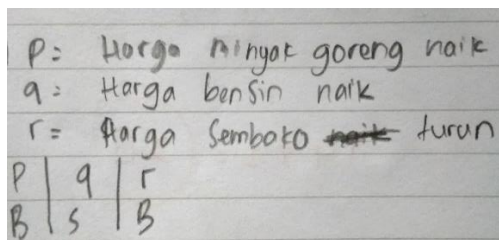 P = Harga minyak goreng naik
q = Harga bensin naik
r = Harga Sembako naik turun
P | q | r
B | S | B